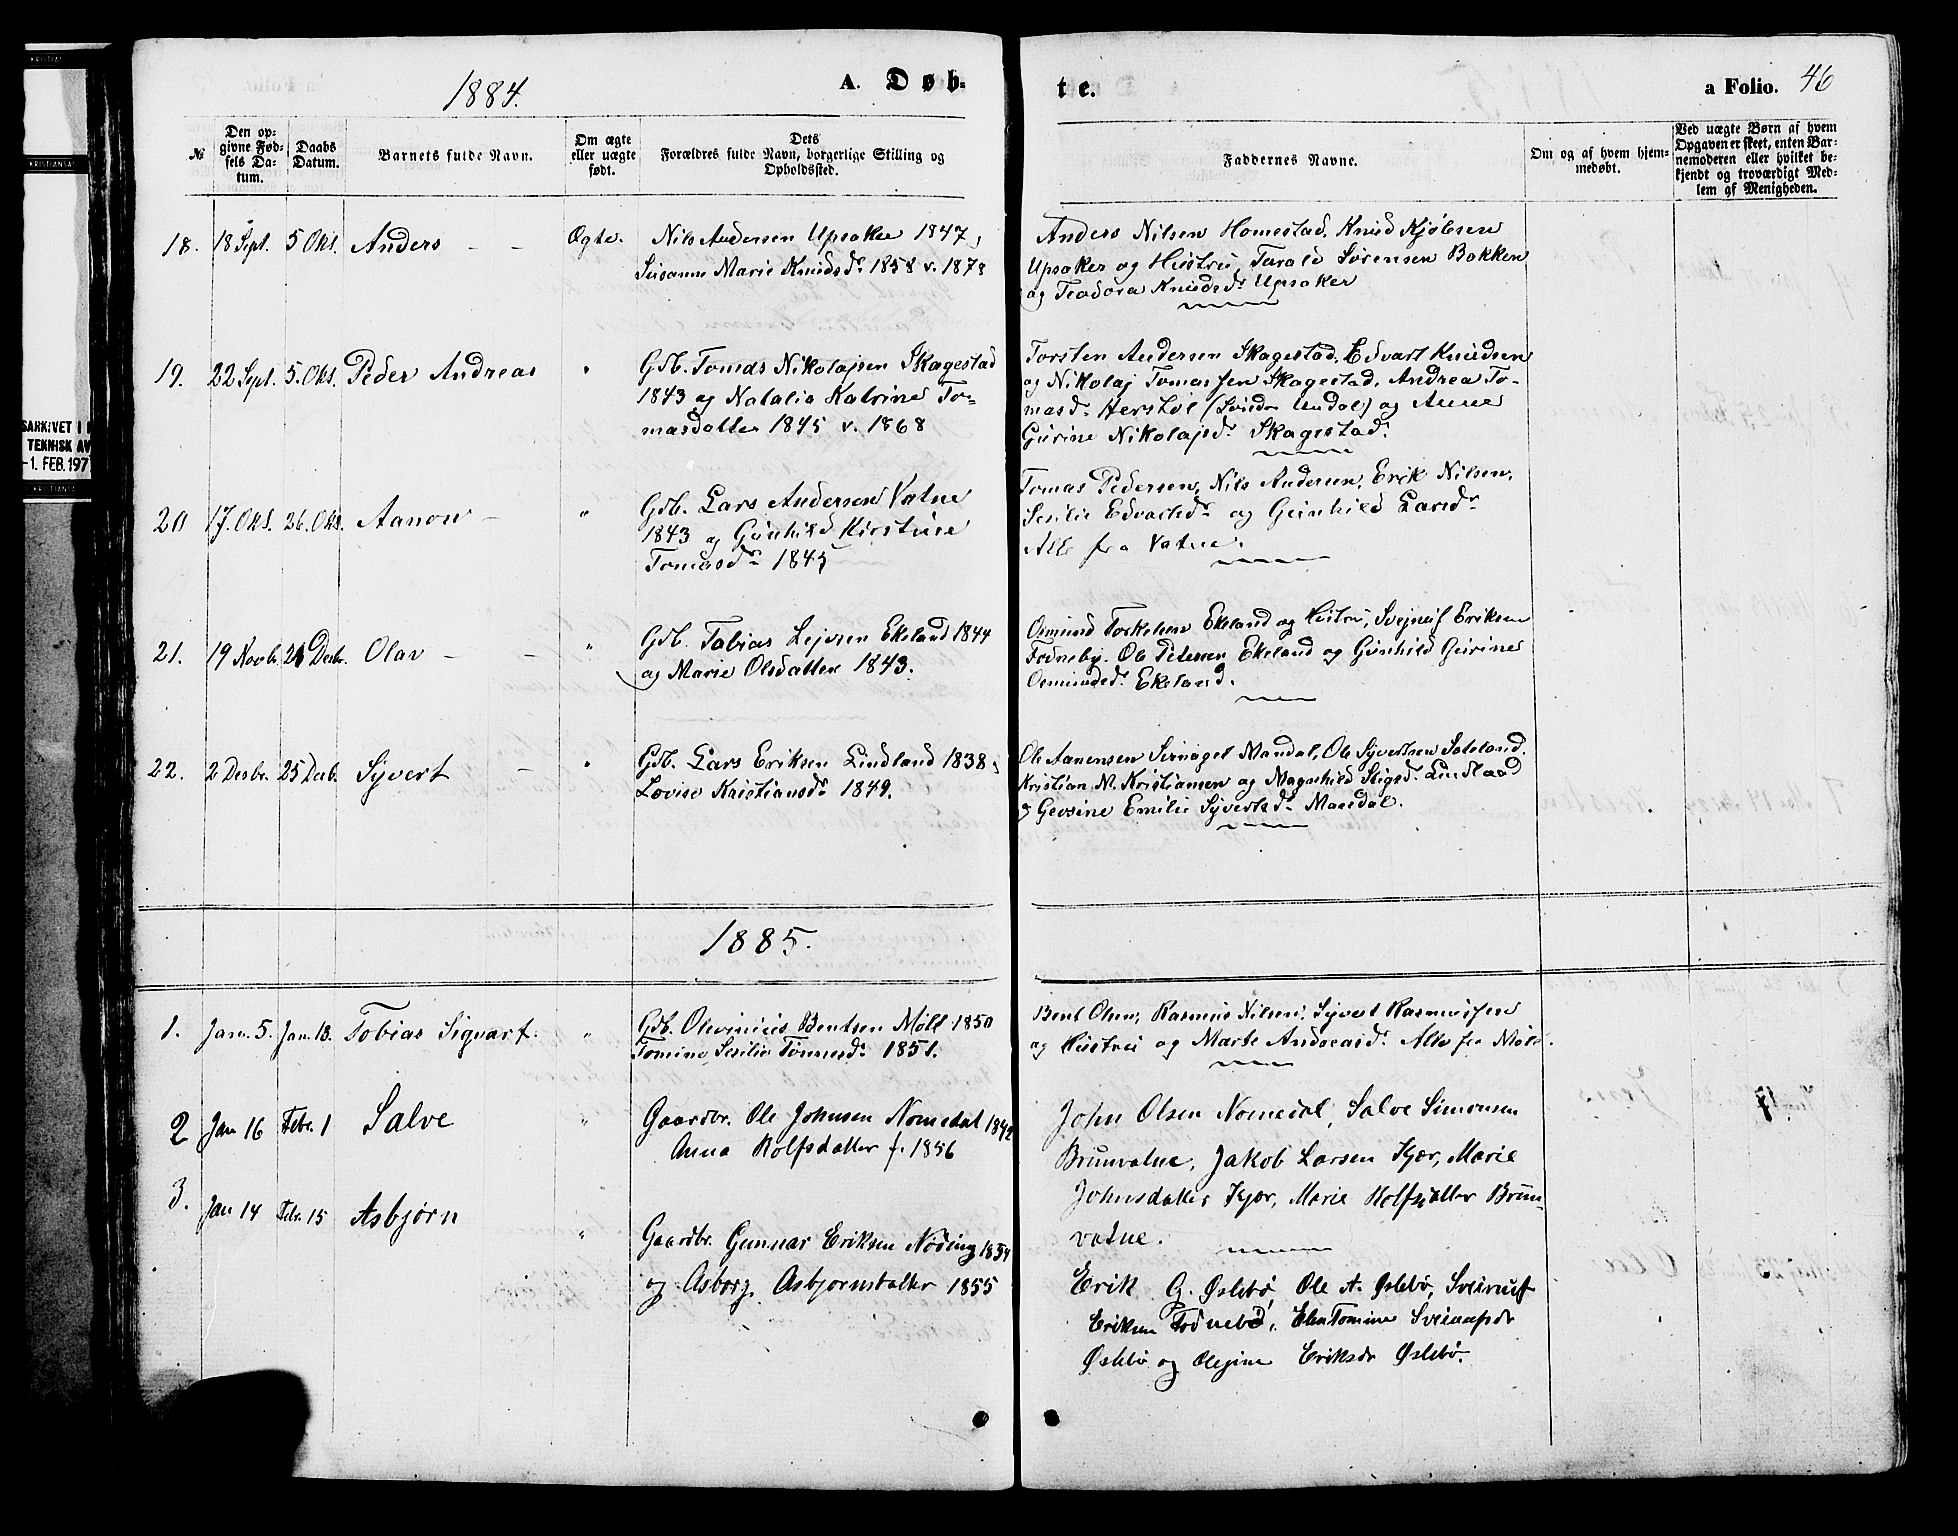 1884.
A. Døb-
te.
a Folio. 46
№
Den op-
givne Fød-
sels Da-
tum.
Daabs
Datum.
Barnets fulde Navn.
Om ægte
eller uægte
født.
Dets
Forældres fulde Navn, borgerlige Stilling og
Opholdssted.
Faddernes Navne.
Om og af hvem hjem-
medøbt.
Ved uægte Børn af hvem
Opgaven er skeet, enten Bar-
nemoderen eller hvilket be-
kjendt og troværdigt Med-
lem af Menigheden.
18. 18 Sept. 5 Okt. Anders – – Ægte.
Nils Andersen Upsaker 1847,
Susanne Marie Knudsdr 1858 v. 1878
Anders Nilsen Homestad, Knud Kjølsen
Upsaker og Hustru, Tarald Sørensen Bakken
og Teodora Knudsdr Upsaker
19. 22 Sept. 5. Okt. Peder Andreas "
Gdb. Tomas Nikolajsen Skagestad
1843 og Natalia Katrine To-
masdatter 1845 v. 1868
Torsten Andersen Skagestad, Edvart Knudsen
og Nikolaj Tomassen Skagestad, Andrea To-
masdr Herstøl (Søndre Undal) og Anne
Gurine Nikolajsdr Skagestad.
20 17. Okt. 26. Okt. Aanon – "
Gdb. Lars Andersen Vatne
1843 og Gunhild Kirstine
Tomasdr 1845
Tomas Pedersen, Nils Andersen, Erik Nilsen,
Sesilie Edvartsdr og Gunhild Larsdr
Alle fra Vatne.
21. 19 Novb. 21 Desb. Olav – – "
Gdb. Tobias Lejvsen Ekeland 1844
og Marie Olsdatter 1843.
Osmund Torkelsen Ekeland og Hustru, Svejnuf Eriksen
Fodneby, Ole Petersen Ekeland og Gunhild Gurine
Osmundsdr Ekeland.
22. 2 Desbr. 25 Desb. Syvert – "
Gdb. Lars Eriksen Lindland 1838,
Lovise Kristiansdr 1849.
Ole Aanensen Mandal, Ole Syvertsen
Kristian M. Kristiansen og Magnhild Stigsdr Lindland
Gevsine Emilie Syvertsdr Mandal.
1885.
1. Jan. 5. Jan. 18. Tobias Sigvart. "
Gdb. Olevinius Bentsen Möll 1850
Tomine Sesilie Tomasdr 1851.
Bent Olsen, Rasmus Nilsen, Syvert Rasmussen
og Hustru og Marte Andreasdr Alle fra Möll.
2 Jan 16 Febr. 1 Salve "
Gaardbr. Ole Johnsen Nomedal 1842
Anna Rolfsdatter f. 1856
John Olsen Nomedal, Salve Simonsen
Brunvatne, Jakob Larsen Kjær, Marie
Johnsdatter Kjær, Marie Rolfsdatter Brun-
vatne.
3. Jan 14 Febr. 15 Asbjørn "
Gaardbr. Gunnar Eriksen Nöding 1854
og Asborg Asbjørnsdatter 1855
Erik G. Øslebø, Ole A. Øslebø, Sveinuf
Eriksen Fodnebø, Elen Tomine Sveinufsdr
Øslebø og Olegine Eriksdr Øslebø.
SARKIVET I
TEKNISK AV
-1. FEB. 197
KRISTIANSA